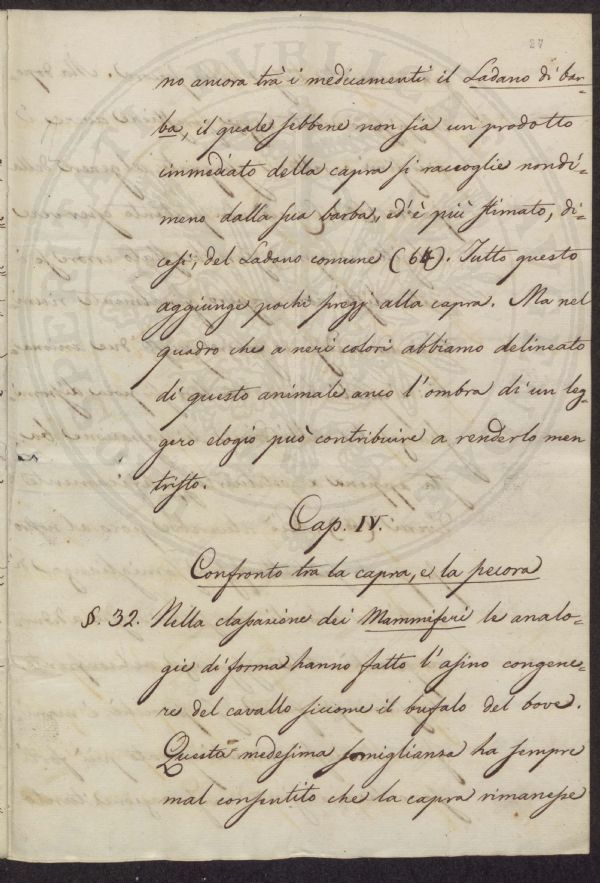 27
no ancora trà i medicamenti il Ladano di bar-
ba, il quale sebbene non sia un prodotto
immediato della capra si raccoglie nondi-
meno dalla sua barba, ed è più stimato, di-
cesi, del Ladano comune (64). Tutto questo
aggiunge pochi pregj alla capra. Ma nel
quadro che a neri colori abbiamo delineato
di questo animale anco l'ombra di un leg-
gero elogio può contribuire a renderlo men
tristo.
Cap. IV.
Confronto tra la capra, e la pecora
§. 32. Nella classazione dei Mammiferi le analo-
gie di forma hanno fatto l'asino congene-
re del cavallo siccome il bufalo del bove.
Questa medesima somiglianza ha sempre
mal consentito che la capra rimanesse